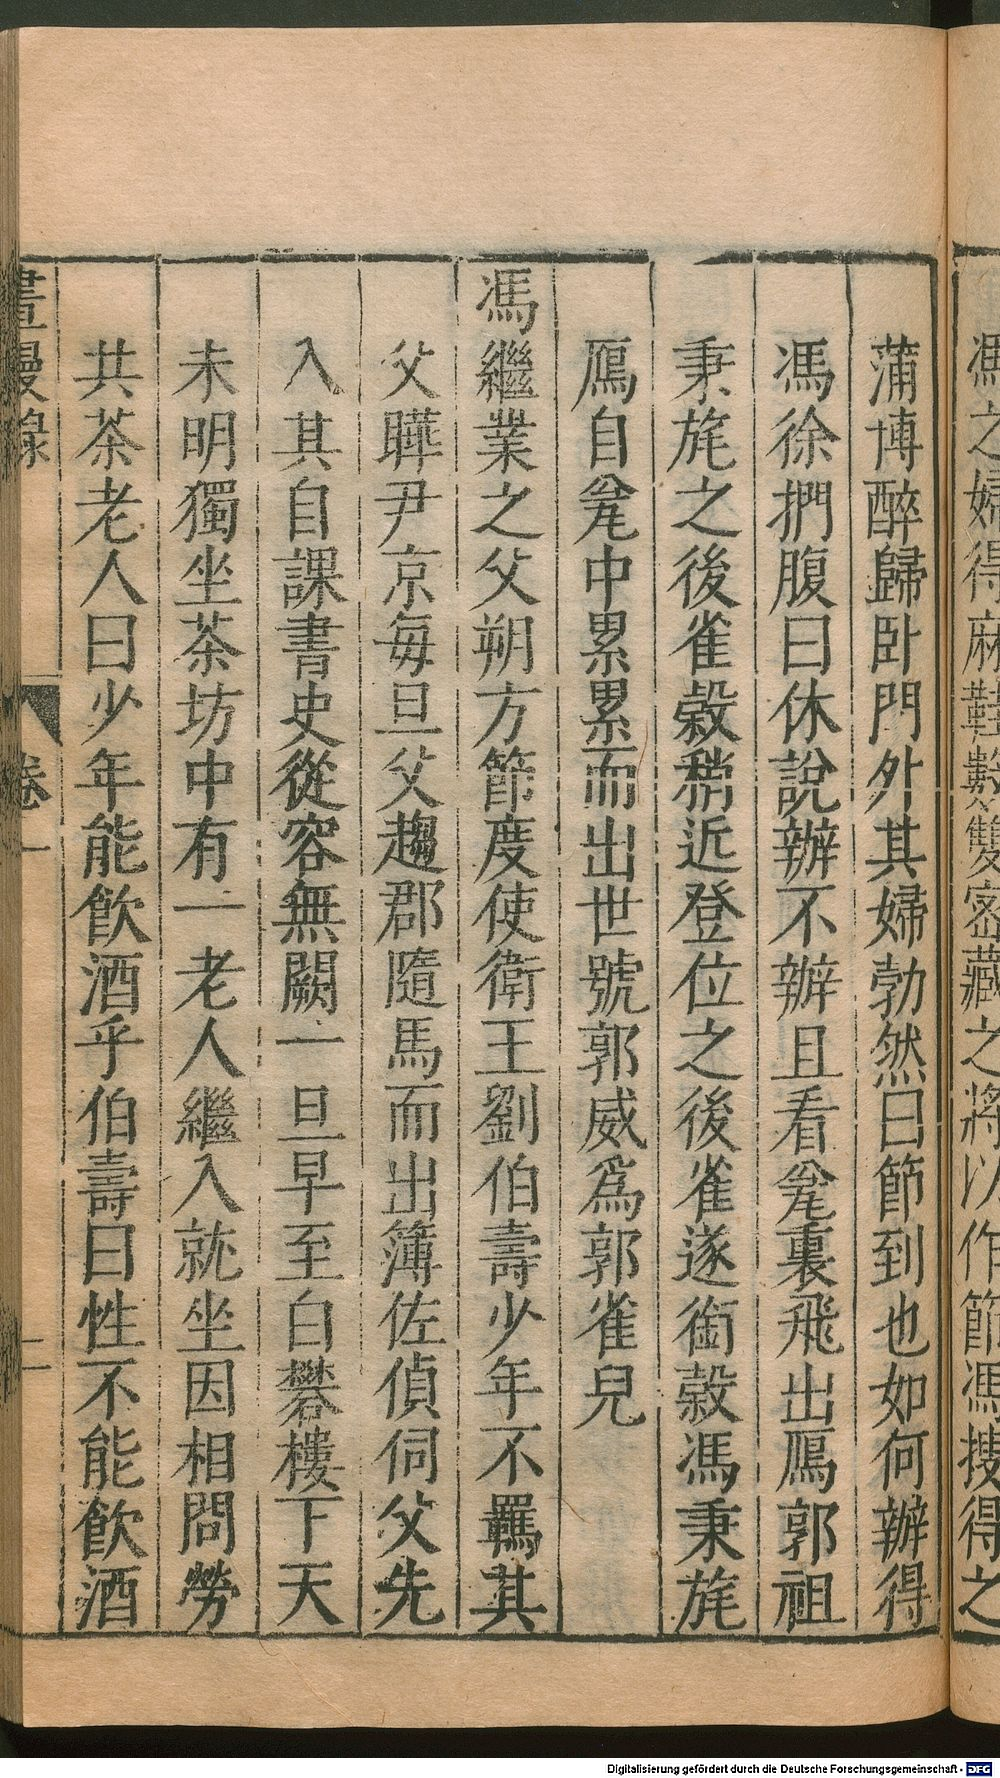 馮之婦得麻鞋數雙密藏之將以作節馮搜得之
蒲博醉歸臥門外其婦勃然曰節到也如何辦得
馮徐捫腹曰休說辦不辦且看瓮裏飛出鴈郭祖
秉旄之後雀穀稍近登位之後雀遂銜穀馮秉旄
鴈自瓮中累累而出世號郭威爲郭雀兒
馮繼業之父朔方節度使衛王劉伯壽少年不羈其
父曄尹京每旦父趨郡隨馬而出簿佐偵伺父先
入其自課書史從容無闕一旦早至白礬樓下天
未明獨坐茶坊中有一老人繼入就坐因相問勞
共茶老人曰少年能飲酒乎伯壽曰性不能飲酒
畫墁錄 卷一 二
Digitalisierung gefördert durch die Deutsche Forschungsgemeinschaft - DFG